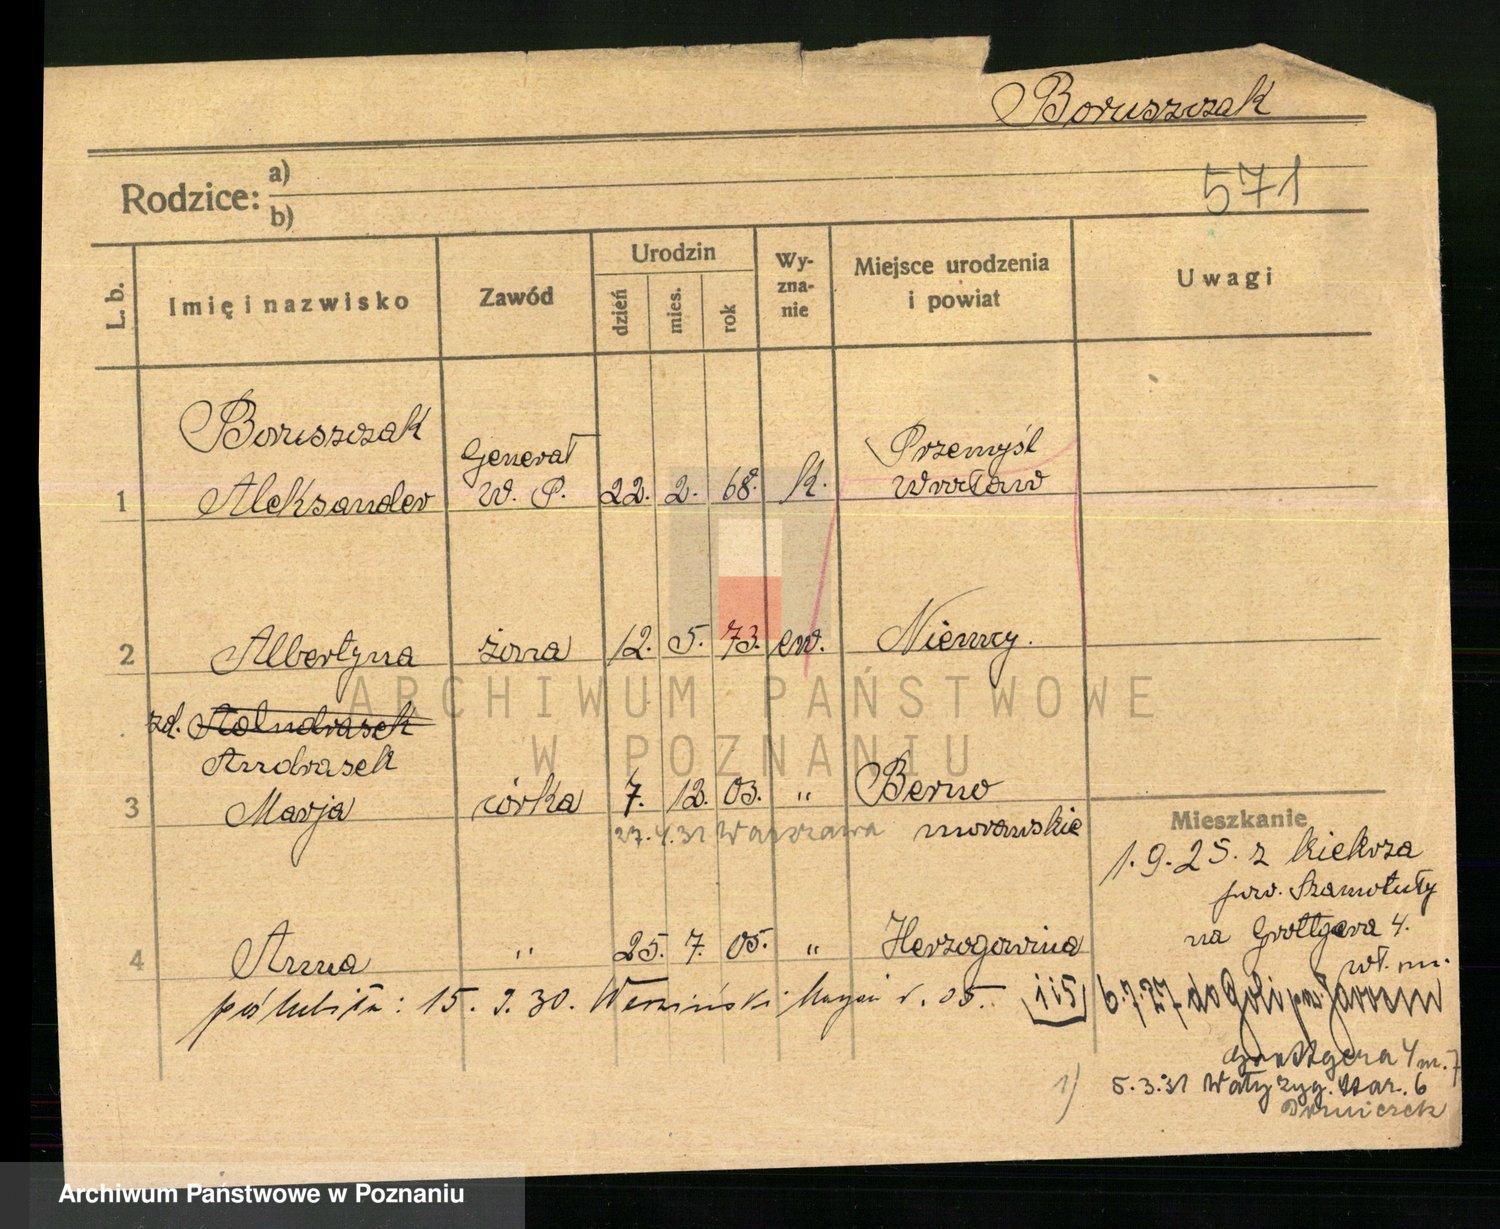 Boruszczak
Rodzice: a)
b)
571
L. b.
Imię i nazwisko
Zawód
Urodzin
dzień
mies.
rok
Wy-
zna-
nie
Miejsce urodzenia
i powiat
Uwagi
Boruszczak
1 Aleksander
Generał
W. P.
22. 2. 68. k.
Przemyśl
Wrocław
2 Albertyna żona 12. 5. 73. ew. Niemcy.
zd.
Andrasek
3 Marja córka 7. 12. 03. " Berno
morawskie
27. 4. 31 Warszawa
4 Anna " 25. 7. 05. " Herzogowina
poślubiła: 15. 9. 30. r. 05. 115
Mieszkanie
1. 9. 25. z Kiekrza
pow. Szamotuły
na Grottgera 4.
wł. m.
6.7.27 do Goli
Grottgera 4 m. 7
1) 5.3.31 Wały Zyg. Star. 6
ARCHIWUM PAŃSTWOWE
W POZNANIU
Archiwum Państwowe w Poznaniu